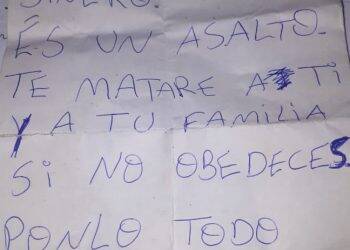 ÉS UN ASALTO.
TE MATARE A TI
Y A TU FAMILIA
SI NO OBEDECES.
PONLO TODO